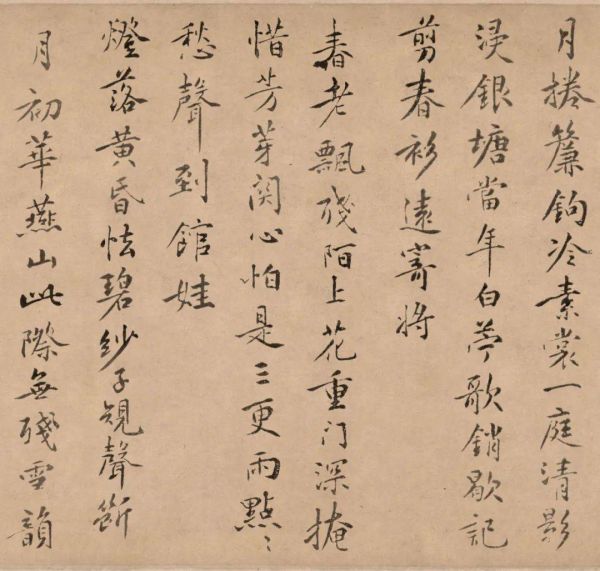 月捲簾鉤冷素裳一庭清影
浸銀塘當年白苧歌銷歇記
剪春衫遠寄將
春老飄殘陌上花重门深掩
惜芳芽関心怕是三更雨點〻
愁聲到館娃
燈落黃昏怯碧紗子規聲斷
月初華燕山此際無殘雪韻